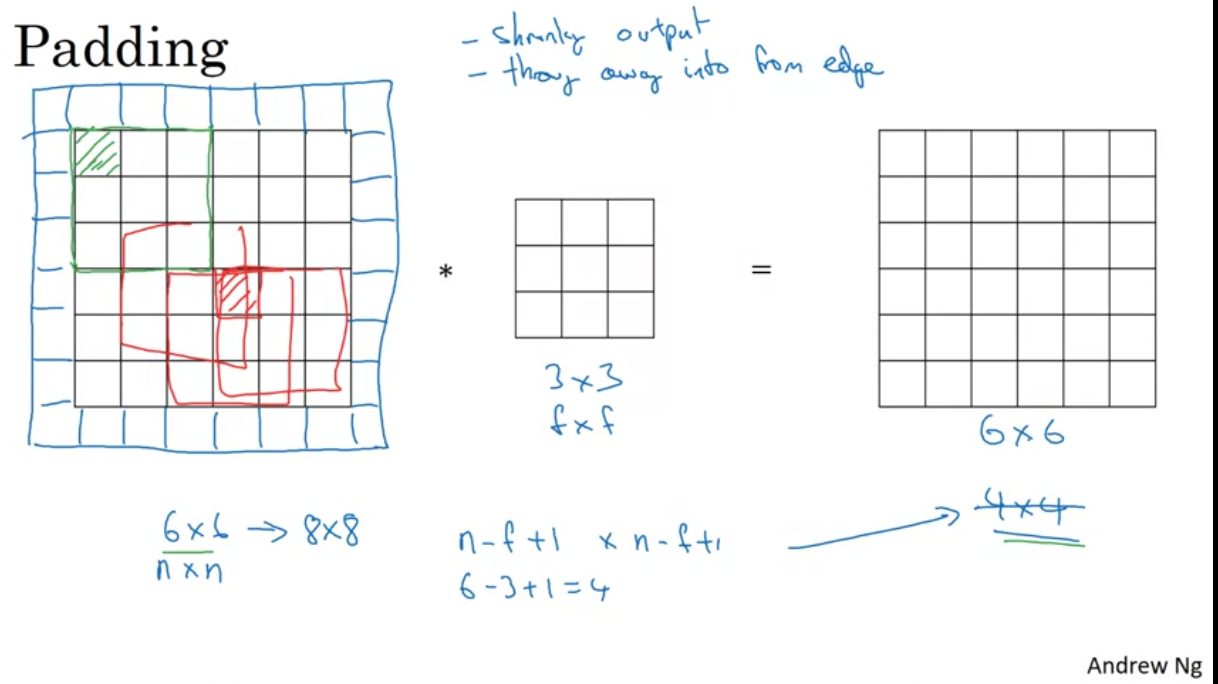 Padding
- shrinky output
- throw away info from edge
*
=
3 x 3
f x f
6 x 6
6 x 6 → 8 x 8
n x n
n - f + 1 x n - f + 1
6 - 3 + 1 = 4
4 x 4
Andrew Ng